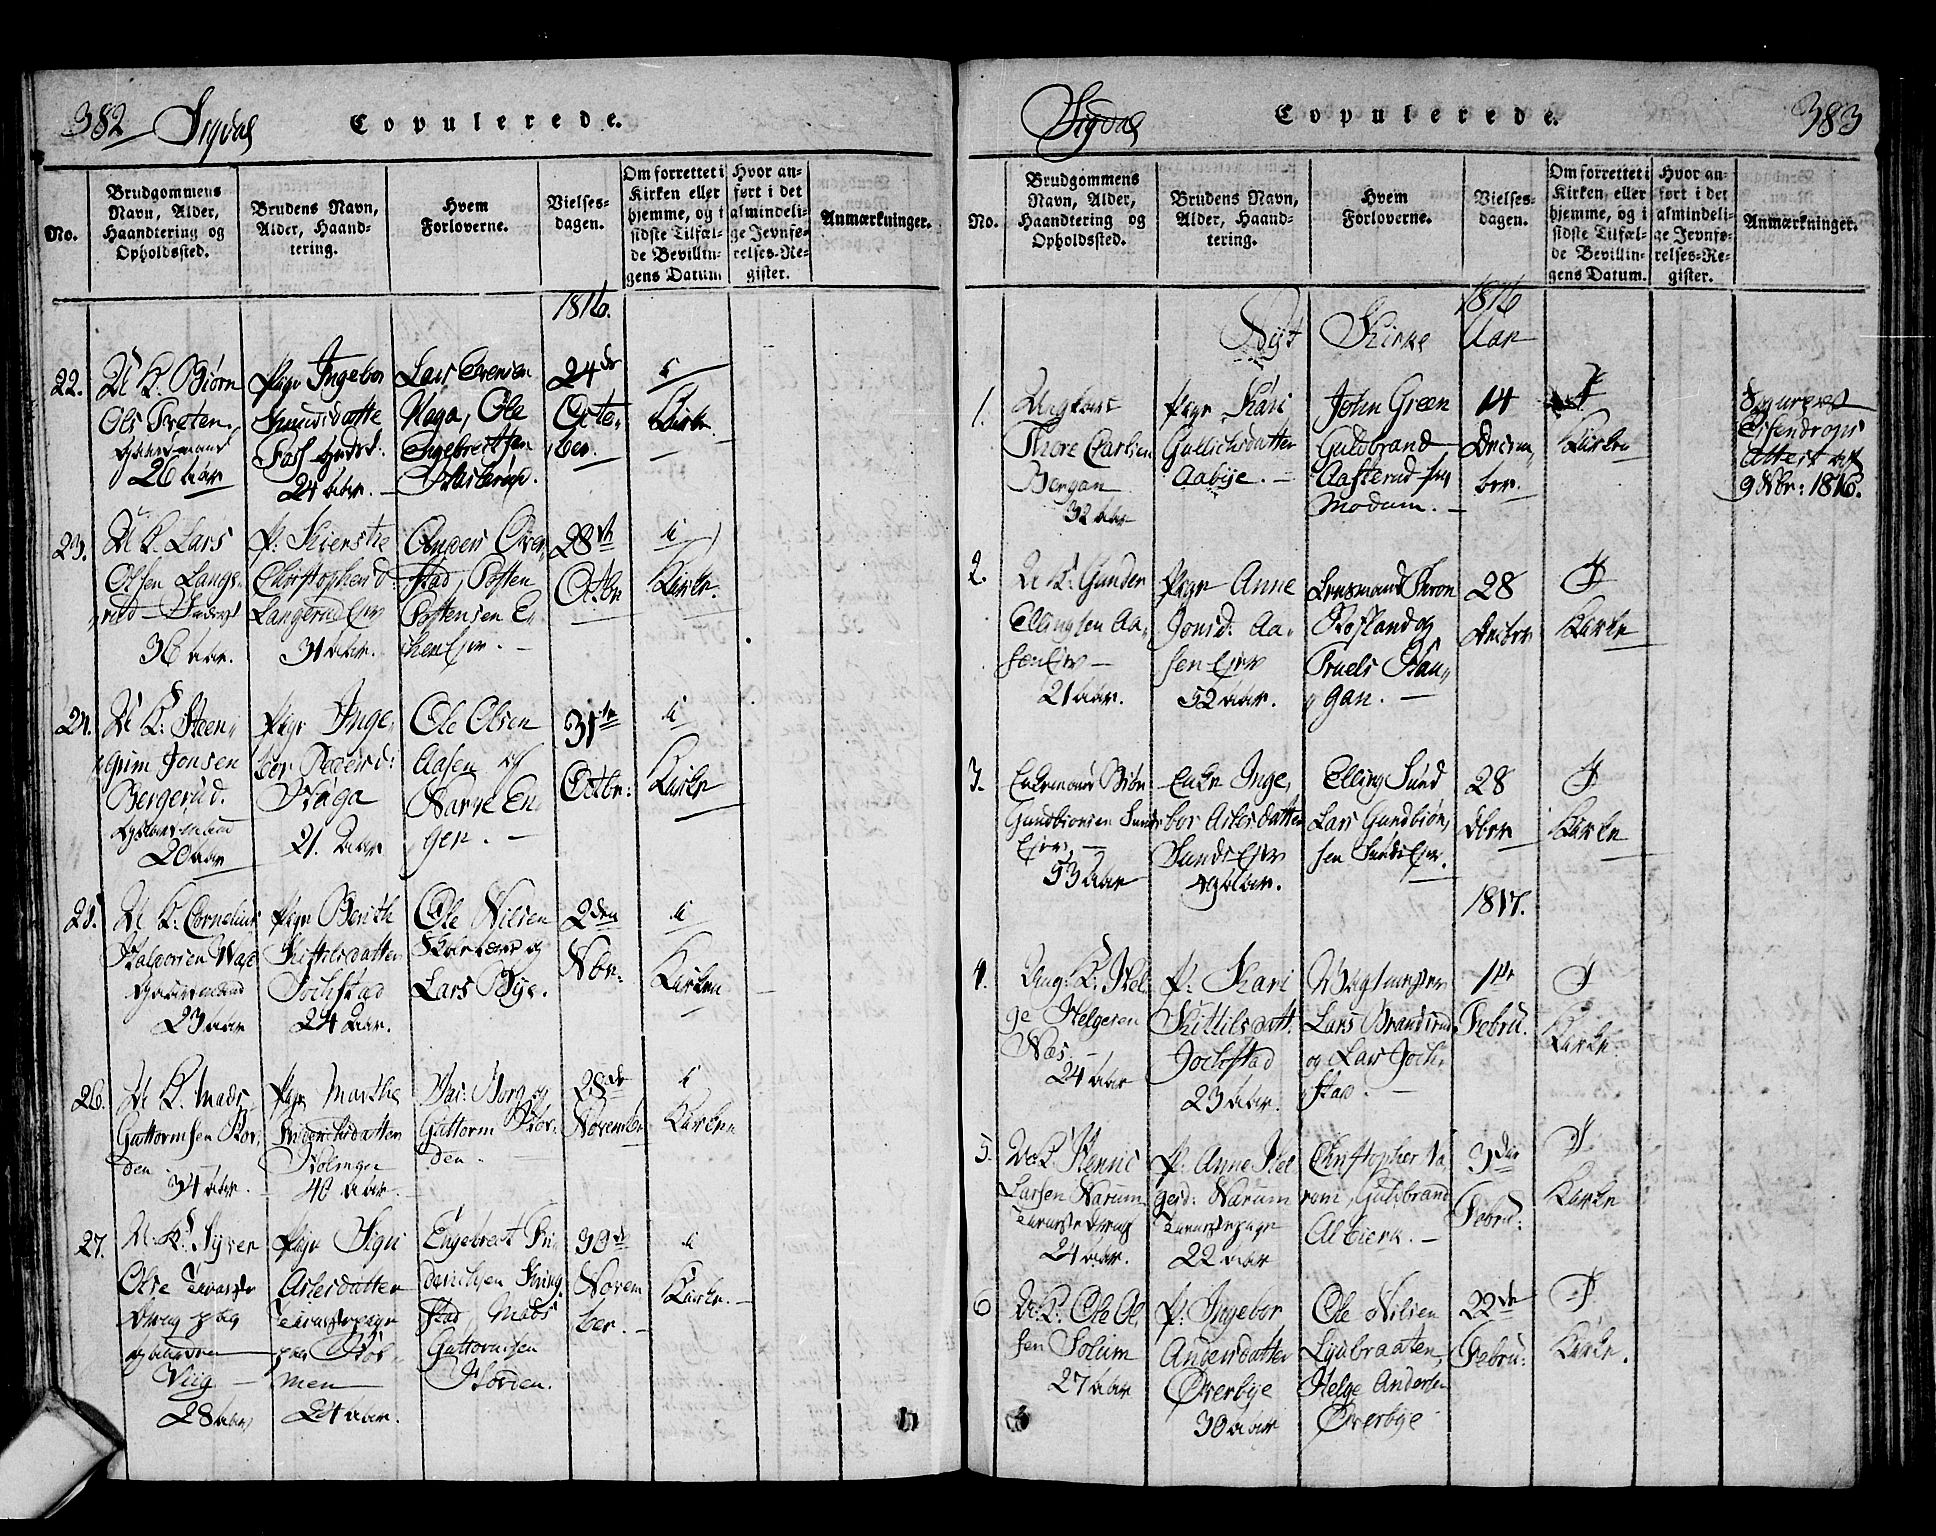 382 Sigdal Copulerede.
No.
Brudgommens
Navn, Alder,
Haandtering og
Opholdssted.
Brudens Navn,
Alder, Haand-
tering.
Hvem
Forloverne.
Vielses-
dagen.
Om forrettet i
Kirken eller
hjemme, og i
sidste Tilfæl-
de Bevillin-
gens Datum
Hvor an-
ført i det
almindeli-
ge Jevnfø-
relses-Re-
gister.
Anmærkninger.
1816.
22.
U K. Biörn
Ols Træten
26 Aar
Pige Ingebor
24 Aar.
Lars Evensen
Haga, Ole
Ingebrethsen
24de
Octo-
ber.
i
Kirken.
23.
U K. Lars
Olsen Langs-
rud
36 Aar.
P. Kierstie
Christophersd.
Langerud Eier
31 Aar.
Anders Over-
stad,
28de
Octbr
i
Kirken.
24.
U K. Steen-
grim Jonsen
Bergerud.
Huusmand
20 Aar
Pige Inge-
bor Pedersd:
Haga
21. Aar
Ole Olsen
Aasen og
Narve En
ger.
31te
Octbr:
i
Kirken
25.
U K. Cornelius
Halvorsen
Huusmand
23 Aar
Pige Berith
Kittilsdatter
Jochstad
24 Aar.
Ole Nilsen
og
Lars Bye.
2den
Nbr.
i
Kirken
26.
U K. Mads
Guttormsen Hor-
den
34 Aar.
Pige Marthe
Friderichsdatter
Holmen
40 Aar.
Guttorm Hor-
den.
28de
November
i
Kirken
27.
U. K. Syver
Olse
28 Aar
Pige Sigri
Aslesdatter
24 Aar.
Engebret Fri-
derichsen
stad, Mads
Guttormsen
Horden.
30de
Novem
ber.
i
Kirken.
Sigdal Copulerede. 383
No.
Brudgommens
Navn, Alder,
Haandtering og
Opholdssted.
Brudens Navn,
Alder, Haand-
tering.
Hvem
Forloverne.
Vielses-
dagen.
Om forrettet i
Kirken, eller
hjemme, og i
sidste Tilfæl-
de Bevillin-
gens Datum.
Hvor an-
ført i det
almindeli-
ge Jevnfø-
relses-Re-
gister.
Anmærkninger.
1816
Nyt Kirke Aar
1.
Ungkarl
Thore Carlsen
Bergan
32 Aar
Pige Kari
Gullichsdatter
Aabye.
John Green
Guldbrand
Aasterud fra
Modum.
14
Decem-
ber.
I
Kirken
Attest af
9 Nbr: 1816.
2.
U K: Gunder
Ellingsen Aa-
sen Eier
21 Aar.
Pige Anne
Jonsd. Aa-
sen Eier
52 Aar.
Lensmand Thron
og
Truels Hau-
gan.
28
Decbr
I
Kirken
3.
Enkemand Biörn
Gundbiörnsen Sunds
Eier,
53 Aar
Enke Inge-
bor Aslesdatter
Sunds Eier
Elling Sund
Lars Gundbiörn-
sen Sunds Eier.
28
dbr
I
Kirken
1817.
4.
Ung: K: Hel-
ge Helgesen
Næs.
24 Aar
P. Kari
Kittilsdatt.
Jochstad
23 Aar.
Lars Brandsrud
og Lars Joch-
stad.
1te
Febru.
I
Kirken
5.
U K. Henric
Larsen Narum
24 Aar.
P. Anne Hel
gesd: Narum
22 Aar
Christopher Na
rum, Guldbrand
Albierk.
3die
Febru:
I
Kirken
6
U. K. Ole Ol-
sen Solum
27 Aar
P. Ingebor
Andersdatter
Overbye
30 Aar
Ole Nilsen
Lydbraaten,
Helge Andersen
Overbye
22de
Febru:
I
Kirken.